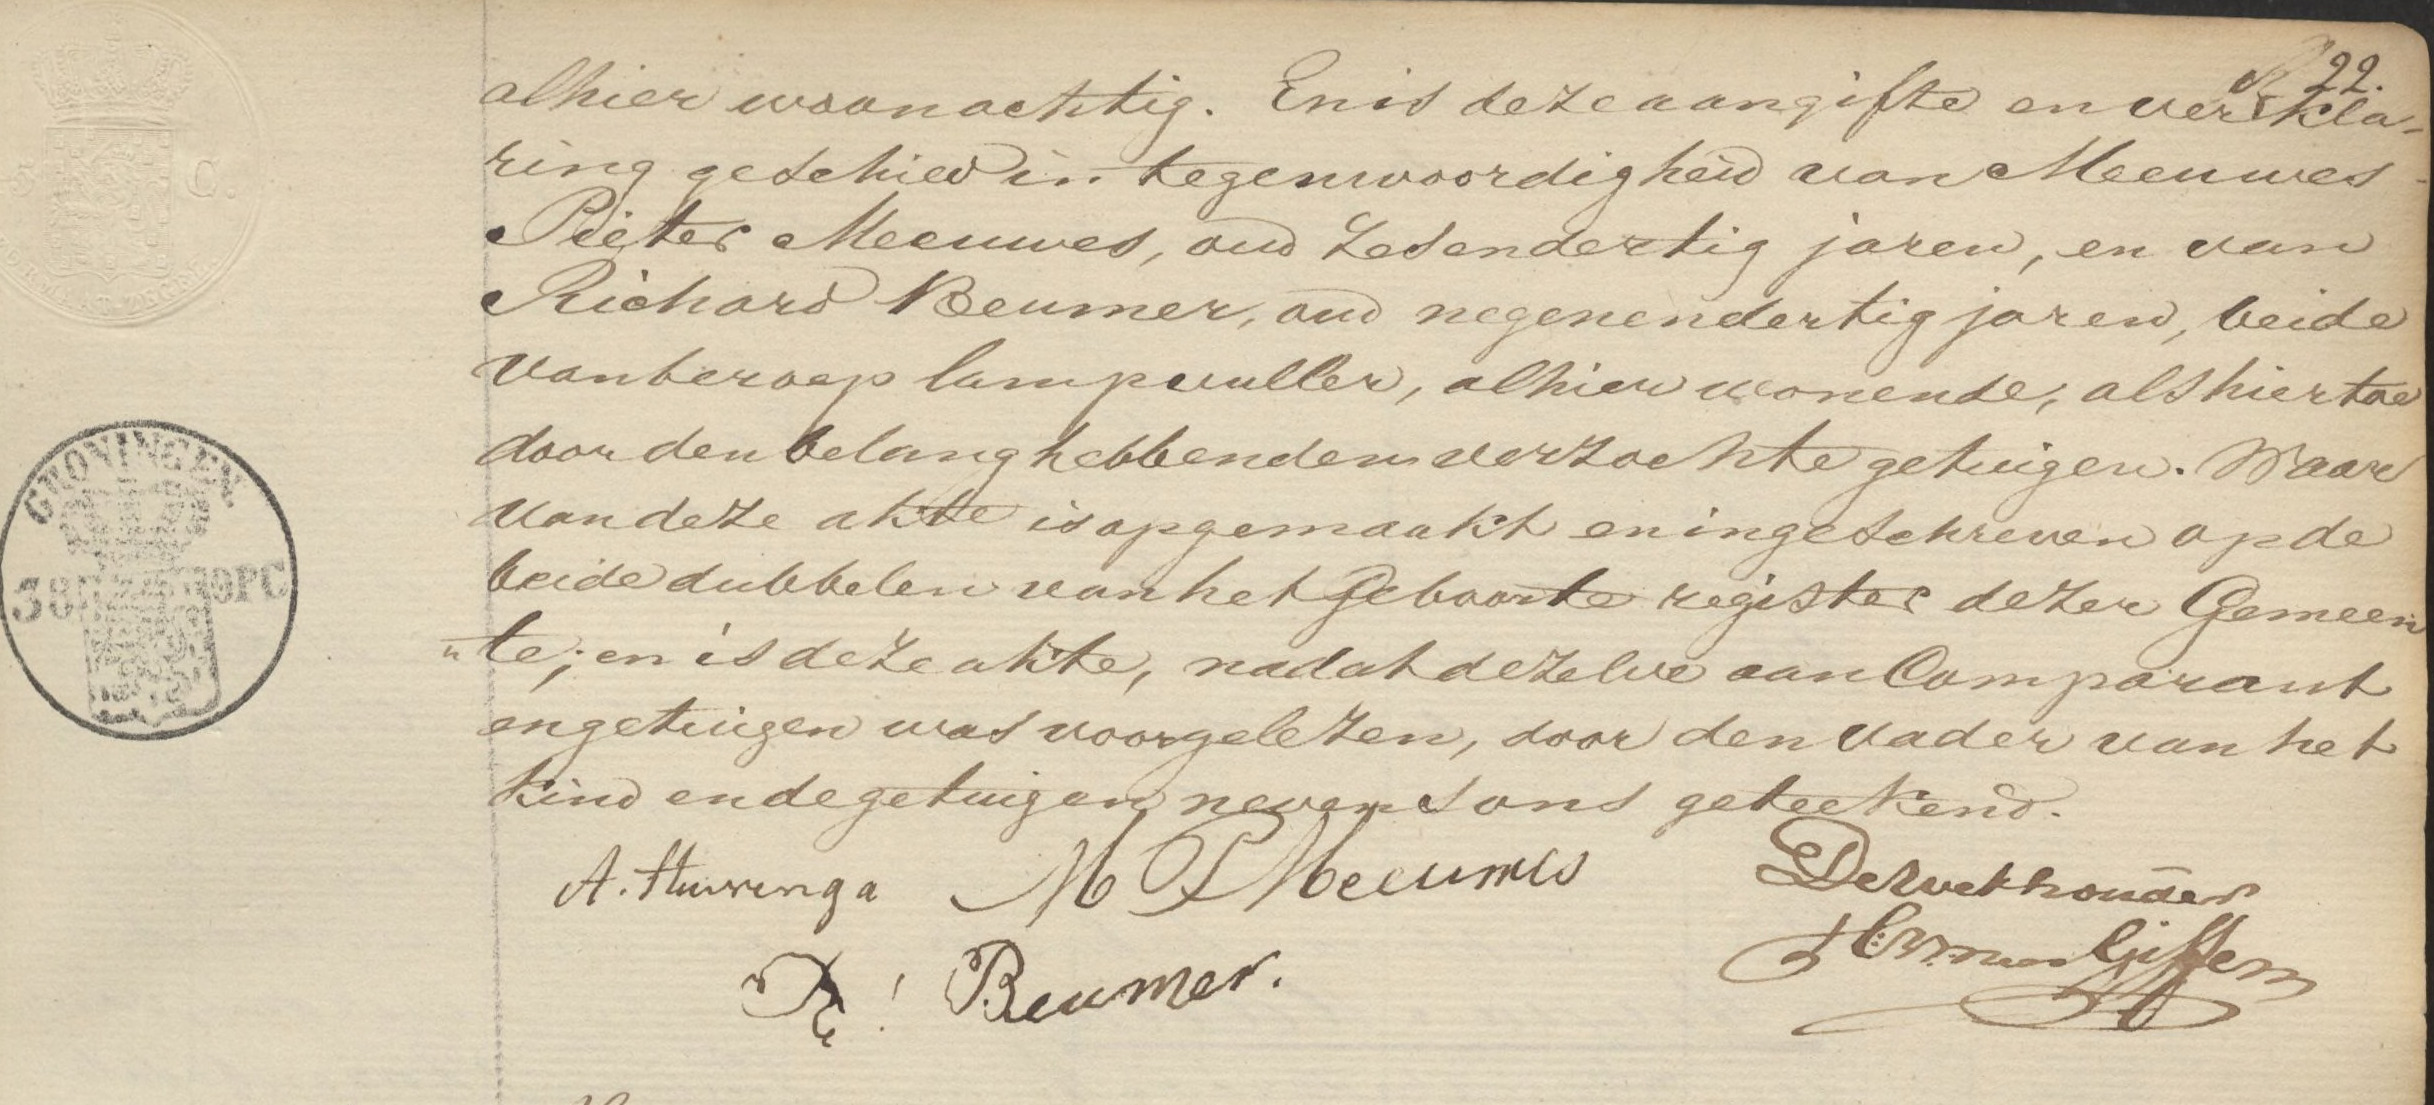 22.
alhier woonachtig. En is deze aangifte en verkla-
ring geschied in tegenwoordigheid van Meeuwes
Pieter Meeuwes, oud zesendertig jaren, en van
Richard Beumer, oud negenendertig jaren, beide
van beroep lampvuller, alhier wonende, als hiertoe
door den belanghebbenden verzochte getuigen. Waar
van deze akte is opgemaakt en ingeschreven op de
beide dubbelen van het Geboorte register dezer Gemeen
"te; en is deze akte, nadat dezelve aan Comparant
en getuigen was voorgelezen, door den vader van het
kind en de getuigen nevens ons geteekend.
A. Huiringa M P Meeuwes De Wethouder
R. Beumer.
GRONINGEN
5 C.